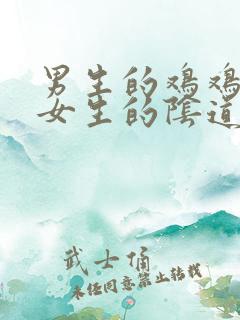 男生的鸡鸡
女生的陰道
武士俑
未经同意禁止转载